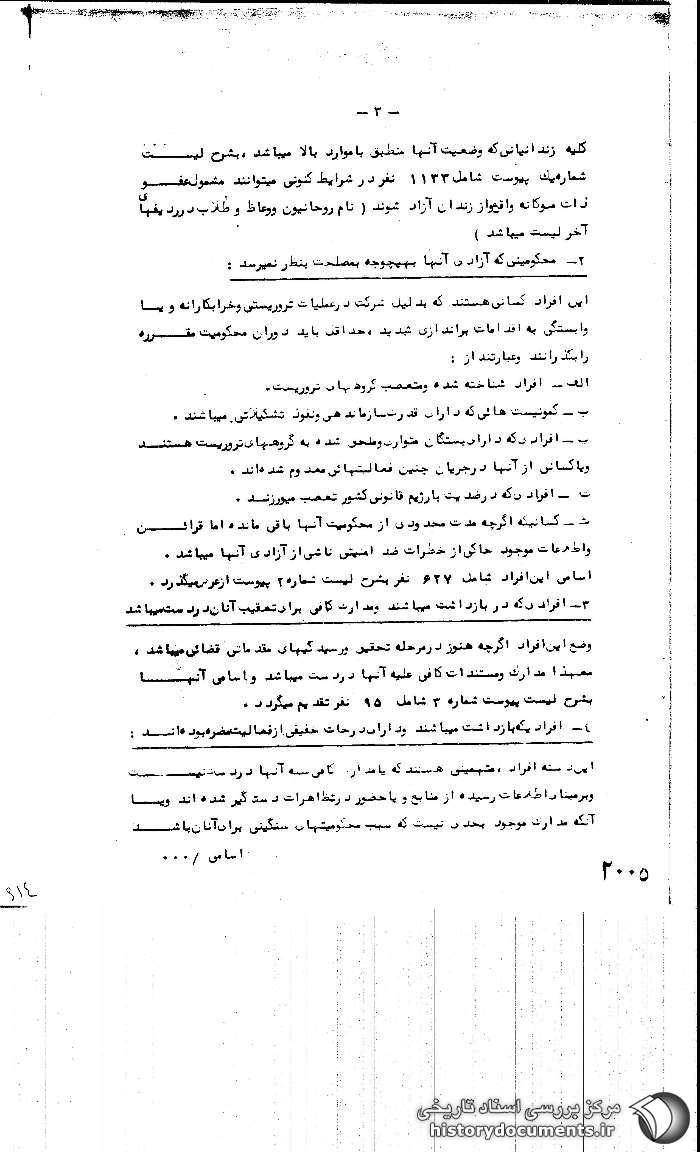 - ۳ -
کلیه زندانیانی که وضعیت آنها منطبق با موارد بالا میباشد ، بشرح لیست
شماره یک پیوست شامل ۱۱۳۳ نفر در شرایط کنونی میتوانند مشمول عفو
ذات ملوکانه واقع و از زندان آزاد شوند ( نام روحانیون و وعاظ و طلاب در ردیفهای
آخر لیست میباشد )
۲- محکومینی که آزادی آنها بهیچوجه بمصلحت بنظر نمیرسد :
این افراد کسانی هستند که بدلیل شرکت در عملیات تروریستی و خرابکارانه و یا
وابستگی به اقدامات براندازی شدید ، حداقل باید دوران محکومیت مقرره
را بگذرانند و عبارتند از :
الف- افراد شناخته شده و متعصب گروههای تروریست .
ب- کمونیست هائی که دارای قدرت سازماندهی و نفوذ تشکیلاتی میباشند .
پ- افرادی که دارای بستگان متواری و ملحق شده به گروههای تروریست هستند
و یا کسانی از آنها در جریان چنین فعالیتهائی معدوم شده اند .
ت- افرادی که در ضدیت با رژیم قانونی کشور تعصب میورزند .
ث- کسانیکه اگرچه مدت محدودی از محکومیت آنها باقی مانده اما قرائن
و اطلاعات موجود حاکی از خطرات ضد امنیتی ناشی از آزادی آنها میباشد .
اسامی این افراد شامل ۶۲۷ نفر بشرح لیست شماره ۲ پیوست از عرض میگذرد .
۳- افرادی که در بازداشت میباشند و مدارک کافی برای تعقیب آنان در دست میباشد
وضع این افراد اگرچه هنوز در مرحله تحقیق و رسیدگیهای مقدماتی قضائی میباشد ،
معهذا مدارک و مستندات کافی علیه آنها در دست میباشد و اسامی آنها
بشرح لیست پیوست شماره ۳ شامل ۹۵ نفر تقدیم میگردد .
۴- افرادیکه بازداشت میباشند و دارای درجات خفیفی از فعالیت مضره بوده اند :
این دسته افراد ، متهمینی هستند که یا مدارک کافی علیه آنها در دست نیست
و برمبنای اطلاعات رسیده از منابع و یا حضور در تظاهرات دستگیر شده اند و یا
آنکه مدارک موجود بحدی نیست که سبب محکومیتهای سنگینی برای آنان باشد
اسامی /۰۰۰
۲۰۰۵
۹۱۴
مرکز بررسی اسناد تاریخی
historydocuments.ir